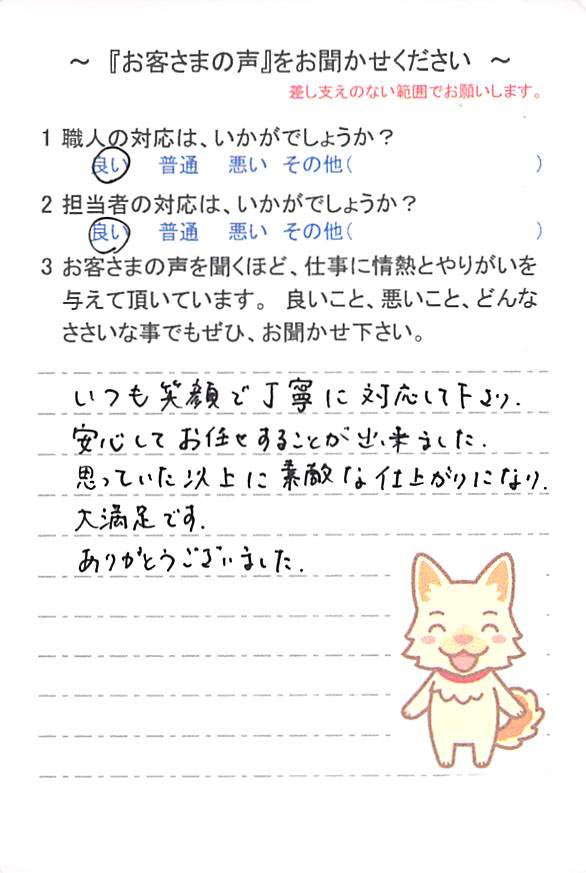 ～ 『お客さまの声』をお聞かせください ～
差し支えのない範囲でお願いします。
1 職人の対応は、いかがでしょうか？
良い 普通 悪い その他( )
2 担当者の対応は、いかがでしょうか？
良い 普通 悪い その他( )
3 お客さまの声を聞くほど、仕事に情熱とやりがいを
与えて頂いています。 良いこと、悪いこと、どんな
ささいな事でもぜひ、お聞かせ下さい。
いつも笑顔で丁寧に対応して下より.
安心してお任せすることが出来ました.
思っていた以上に素敵な仕上がりになり.
大満足です.
ありがとうございました.